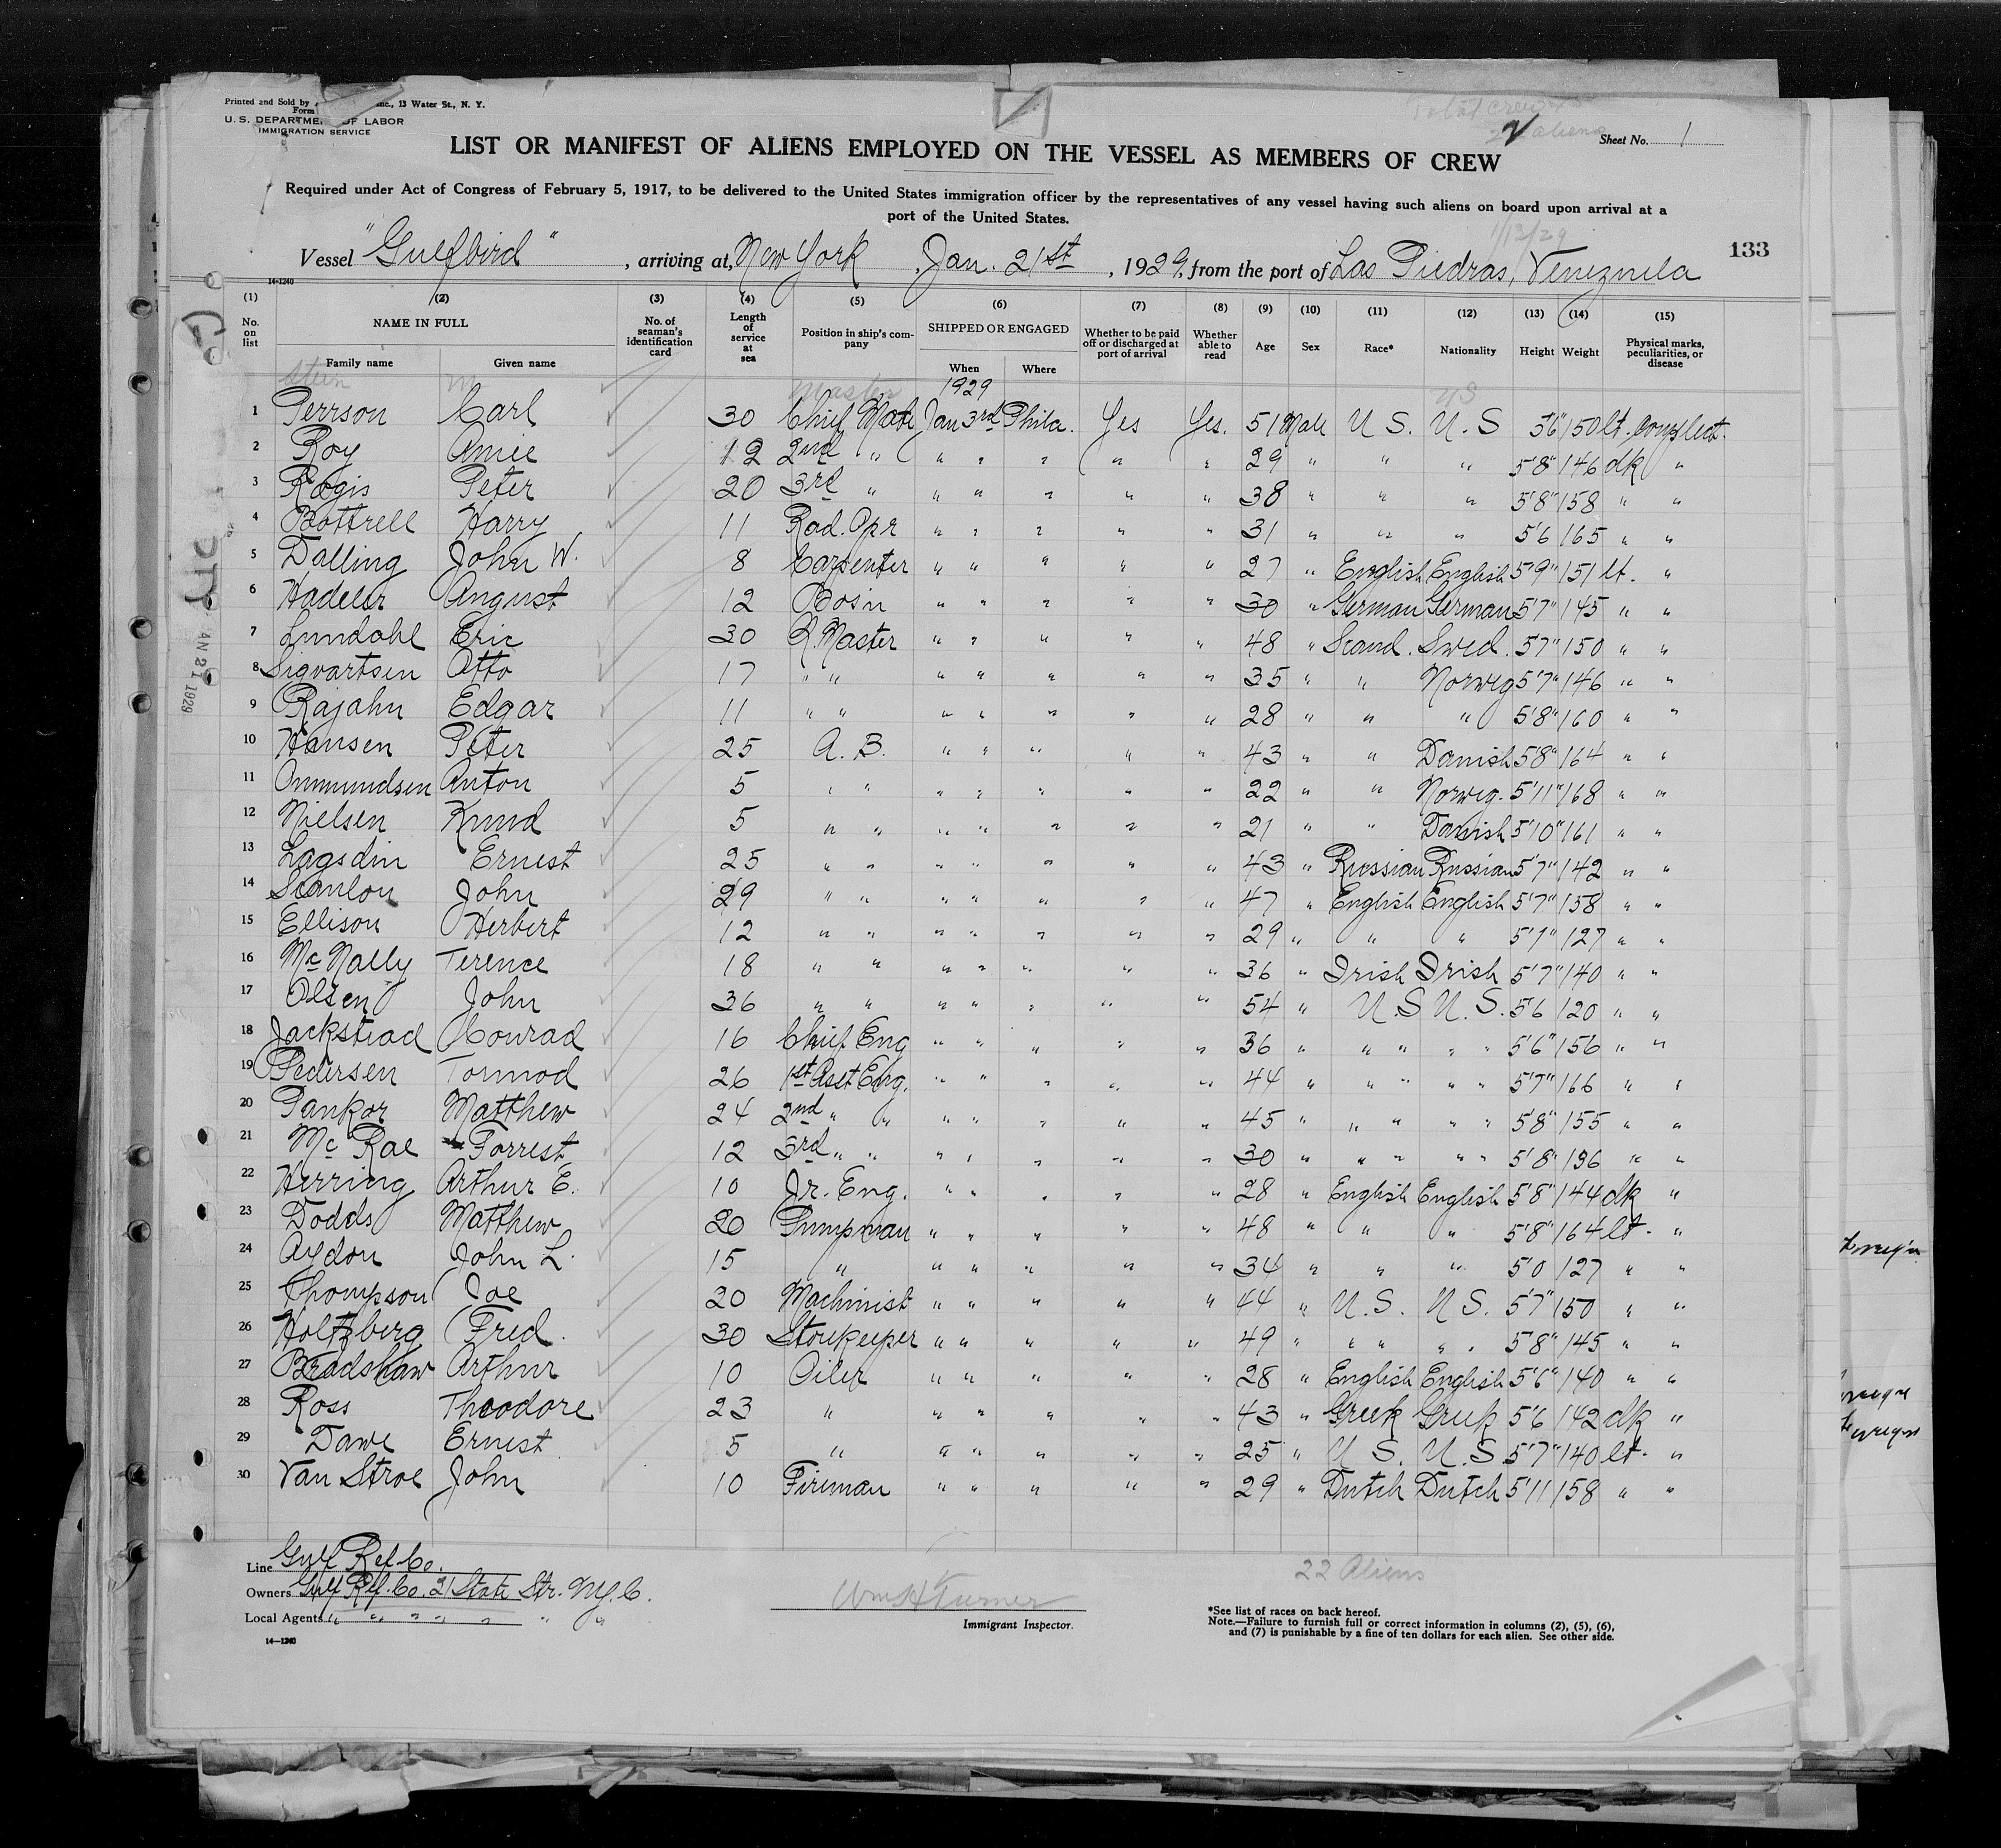 Printed and Sold by Inc., 13 Water St., N. Y.
Form
U. S. DEPARTMENT OF LABOR
IMMIGRATION SERVICE
Total crew
aliens
Sheet No. 1
LIST OR MANIFEST OF ALIENS EMPLOYED ON THE VESSEL AS MEMBERS OF CREW
Required under Act of Congress of February 5, 1917, to be delivered to the United States immigration officer by the representatives of any vessel having such aliens on board upon arrival at a
port of the United States.
1/13/29
133
Vessel "Gulfbird", arriving at, New York, Jan. 21st, 1929, from the port of Las Piedras, Venezuela
14-1240
(1) (2) (3) (4) (5) (6) (7) (8) (9) (10) (11) (12) (13) (14) (15)
No. on list NAME IN FULL No. of seaman's identification card Length of service at sea Position in ship's company SHIPPED OR ENGAGED Whether to be paid off or discharged at port of arrival Whether able to read Age Sex Race* Nationality Height Weight Physical marks, peculiarities, or disease
Family name Given name When Where
Stein M Master 1929 US
1 Perrson Carl 30 Chief Mate Jan 3rd Phila. Yes Yes. 51 Male U S. U. S 5'6" 150 lt. complect.
2 Roy Amie 12 2nd " " " " " " 29 " " " 5'8" 146 dk "
3 Regis Peter 20 3rd " " " " " " 38 " " " 5'8" 158 " "
4 Bottrell Harry 11 Rad. Opr " " " " " 31 " " " 5'6 165 " "
5 Dalling John W. 8 Carpenter " " " " " 27 " English English 5'9" 151 lt. "
6 Hadeler August 12 Bosn " " " " " 30 " German German 5'7" 145 " "
7 Lundahl Eric 30 Q. Master " " " " " 48 " Scand. Swed. 5'7" 150 " "
8 Sigvartsen Otto 17 " " " " " " " 35 " " Norweg 5'7" 146 " "
9 Rajahn Edgar 11 " " " " " " " 28 " " " 5'8" 160 " "
10 Hansen Peter 25 A. B. " " " " " 43 " " Danish 5'8" 164 " "
11 Ommundsen Anton 5 " " " " " " " 22 " " Norweg. 5'11" 168 " "
12 Nielsen Knud 5 " " " " " " " 21 " " Danish 5'10" 161 " "
13 Lagsdin Ernest 25 " " " " " " " 43 " Russian Russian 5'7" 142 " "
14 Scanlon John 29 " " " " " " " 47 " English English 5'7" 158 " "
15 Ellison Herbert 12 " " " " " " " 29 " " " 5'7" 127 " "
16 McNally Terence 18 " " " " " " " 36 " Irish Irish 5'7" 140 " "
17 Olsen John 36 " " " " " " " 54 " U. S U. S. 5'6 120 " "
18 Jackstead Conrad 16 Chief Eng " " " " " 36 " " " " " 5'6" 156 " "
19 Pedersen Tormod 26 1st Asst Eng. " " " " " 44 " " " " " 5'7" 166 " "
20 Pankor Matthew 24 2nd " " " " " " " 45 " " " " " 5'8" 155 " "
21 Mc Rae Forrest 12 3rd " " " " " " " 30 " " " " " 5'8" 136 " "
22 Herring Arthur E. 10 Jr. Eng. " " " " " 28 " English English 5'8" 144 dk "
23 Dodds Matthew 20 Pumpman " " " " " 48 " " " 5'8" 164 lt. "
24 Aydon John L. 15 " " " " " " 34 " " " 5'0 127 " "
25 Thompson Joe 20 Machinist " " " " " 44 " U. S. U S. 5'7" 150 " "
26 Holtzberg Fred. 30 Storekeeper " " " " " 49 " " " " " 5'8" 145 " "
27 Bradshaw Arthur 10 Oiler " " " " " 28 " English English 5'6" 140 " "
28 Ross Theodore 23 " " " " " " 43 " Greek Greek 5'6 142 dk "
29 Dawe Ernest 5 " " " " " " 25 " U S. U. S 5'7" 140 lt. "
30 Van Stroe John 10 Fireman " " " " " 29 " Dutch Dutch 5'11 158 " "
JAN 21 1929
Line Gulf Ref. Co.
Owners Gulf Ref. Co. 21 State Str. N.Y. C.
Local Agents " " " " " " "
14—1240
Wm H Turner
Immigrant Inspector.
22 Aliens
*See list of races on back hereof.
Note.—Failure to furnish full or correct information in columns (2), (5), (6),
and (7) is punishable by a fine of ten dollars for each alien. See other side.